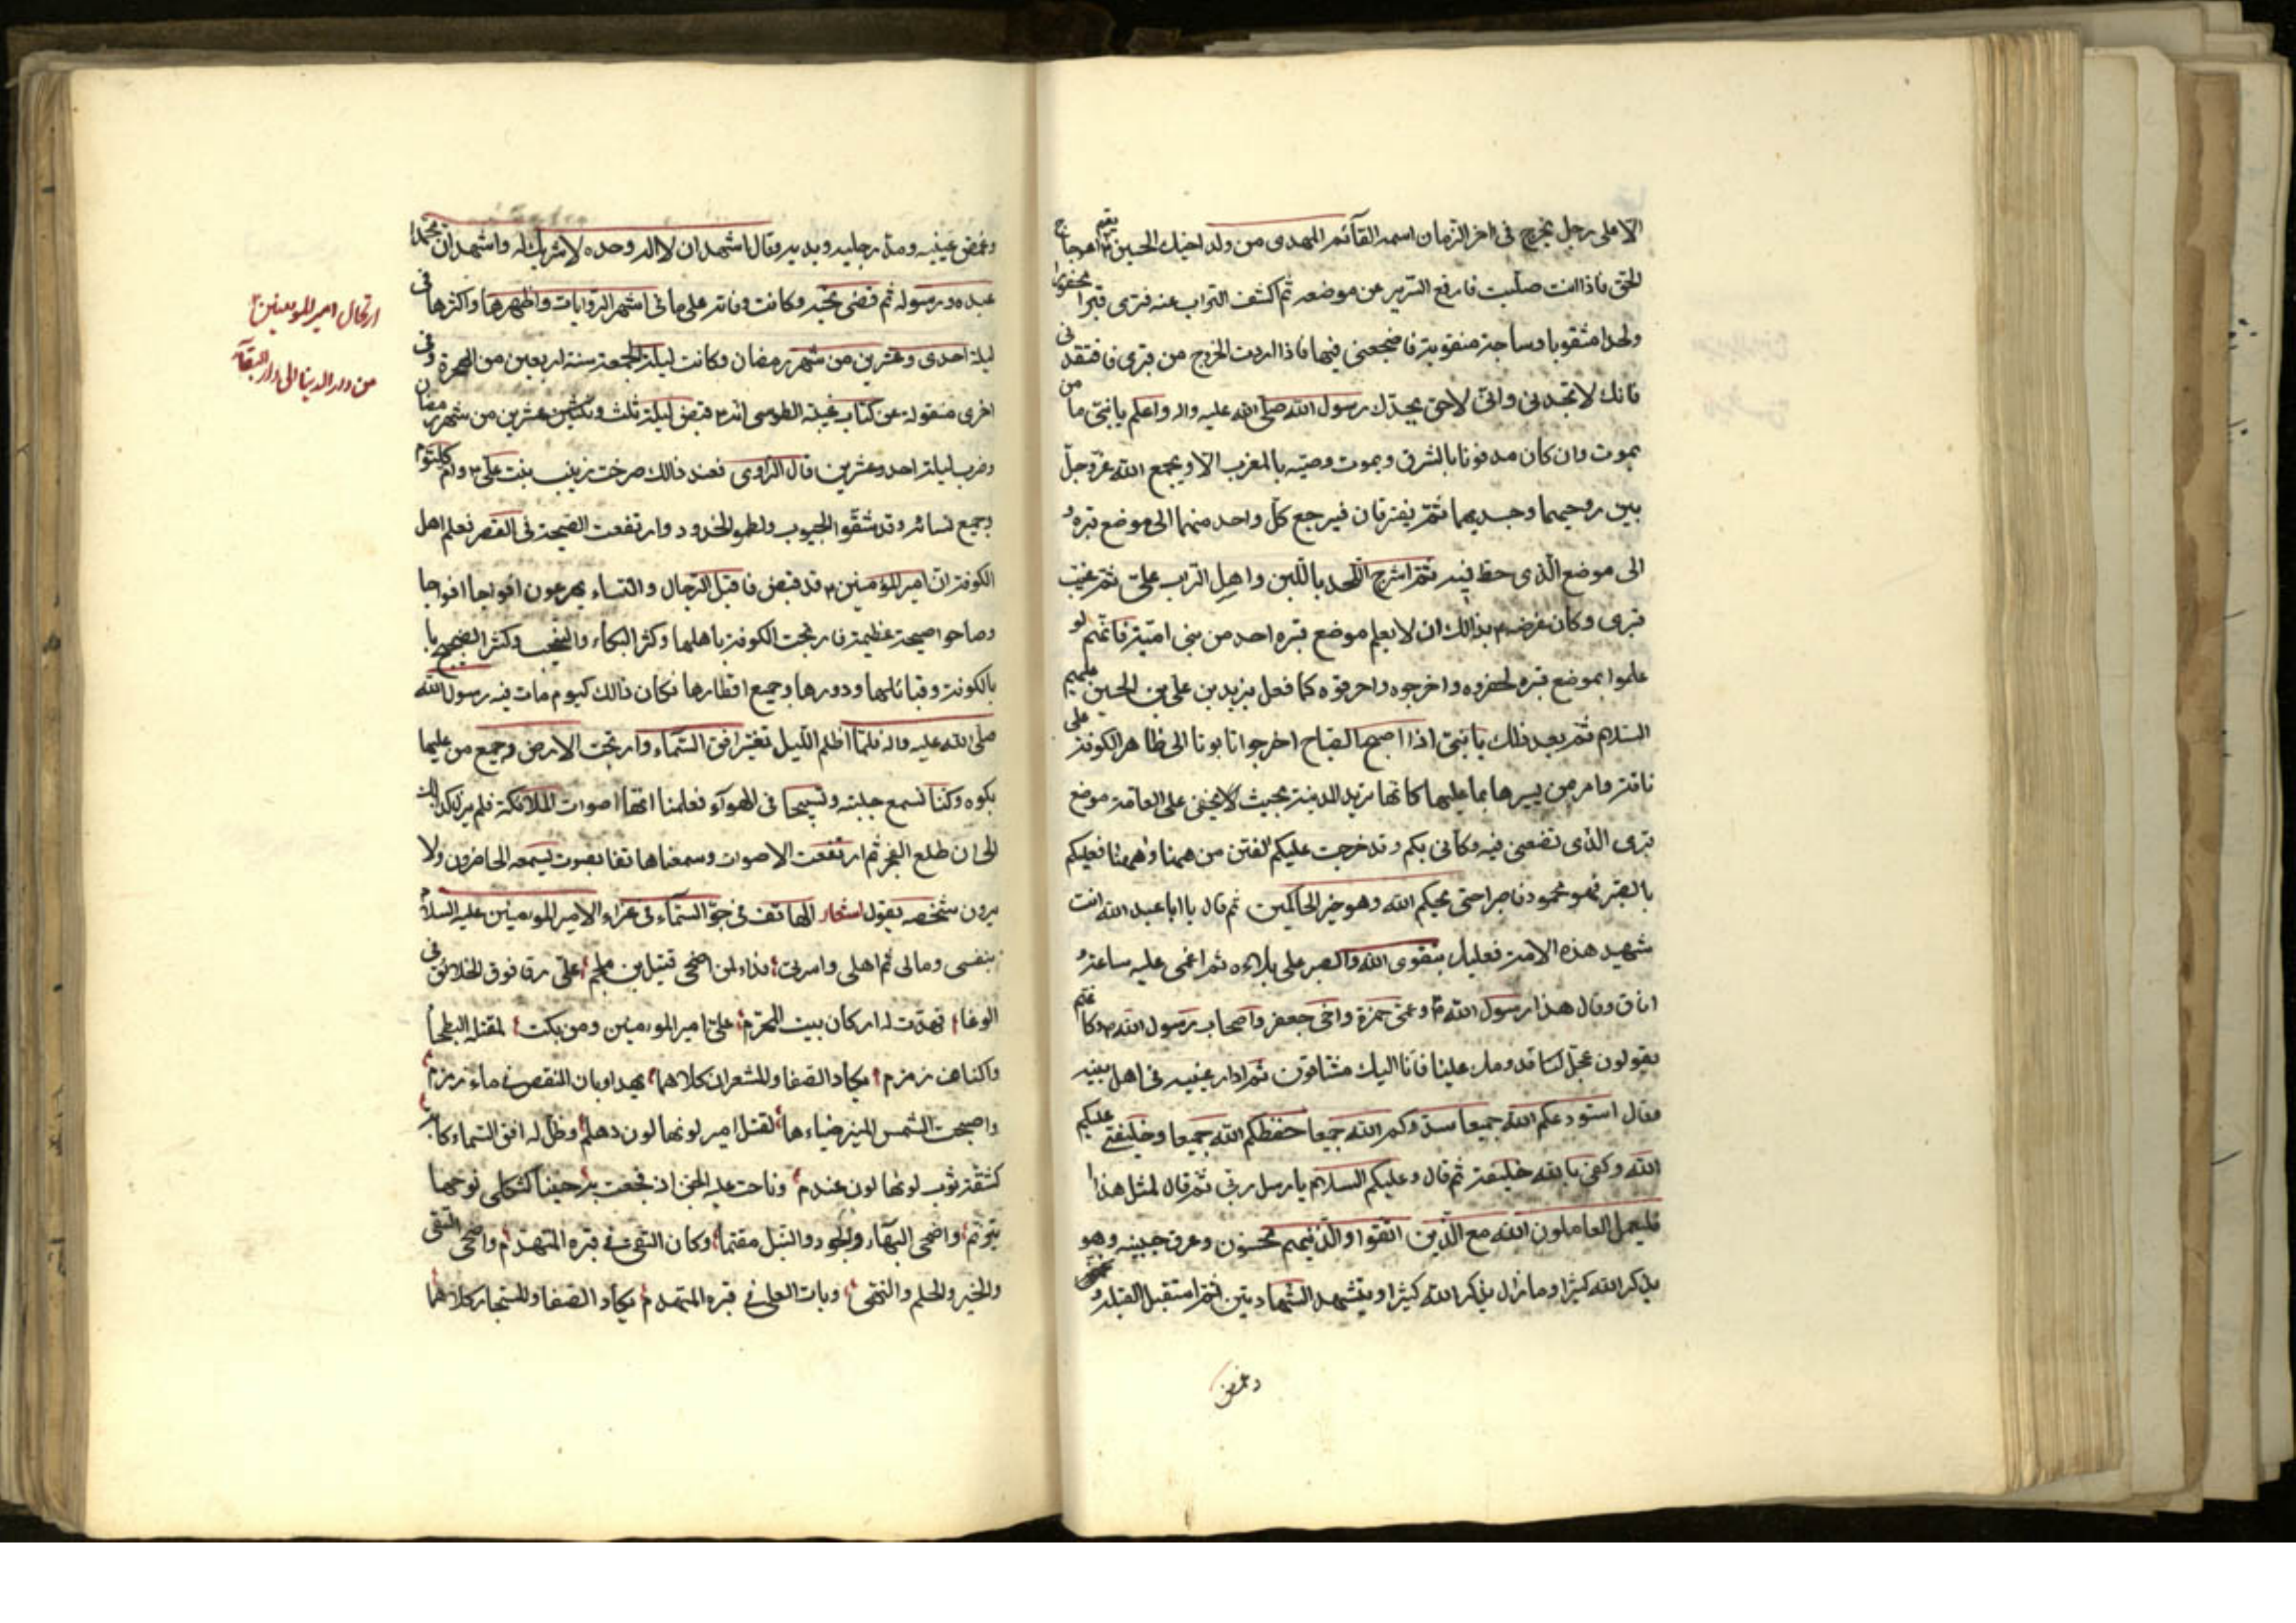 الا على رجل يخرج فى اخر الزمان اسمه القآئم المهدى من ولد اخيك الحسين ٣ يقيم اعوجاج
الحق فاذا انت صليت فارفع السرير عن موضعه ثم اكشف التراب عنه فترى قبرا محفورا
ولحدا مثقوبا وساجة منقوبة فاضجعنى فيها فاذا اردت الخروج من قبرى فافتقدنى
فانك لا تجدنى وانى لاحق بجدك رسول الله صلى الله عليه واله واعلم يا بنى ما من
يموت وان كان مدفونا بالشرق ويموت وصيه بالمغرب الا ويجمع الله عز وجل
بين روحيهما وجسديهما ثم يفترقان فيرجع كل واحد منهما الى موضع قبره و
الى موضع الذى حط فيه ثم اشرج اللحد باللبن واهل التراب على ثم غيب
قبرى وكان غرضه ٣ بذالك ان لا يعلم موضع قبره احد من بنى امية فانهم لو
علموا بموضع قبره لحفروه واخرجوه واحرقوه كما فعل بزيد بن على بن الحسين عليهم
السلام ثم بعد ذلك يا بنى اذا اصبح الصباح اخرجوا تابوتا الى ظاهر الكوفة على
ناقة وامر من يسيرها بما عليها كانها تريد المدينة بحيث لا يخفى على العامة موضع
قبرى الذى تضعنى فيه وكانى بكم وقد خرجت عليكم الفتن من ههنا وههنا فعليكم
بالصبر فهو محمود فاصبر حتى يحكم الله وهو خير الحاكمين ثم قال يا ابا عبد الله انت
شهيد هذه الامة فعليك بتقوى الله والصبر على بلائه ثم اغمى عليه ساعة و
افاق وقال هذا رسول الله ص وعمى حمزة واخى جعفر واصحاب رسول الله ص وكلهم
يقولون عجل لنا قدومك علينا فانا اليك مشتاقون ثم ادار عينيه فى اهل بيته
فقال استودعكم الله جميعا سددكم الله جميعا حفظكم الله جميعا وخليفتى عليكم
الله وكفى بالله خليفة ثم قال وعليكم السلام يا رسل ربى ثم قال لمثل هذا
فليعمل العاملون ان الله مع الذين اتقوا والذين هم محسنون وعرق جبينه وهو
يذكر الله كثيرا وما زال يذكر الله كثيرا ويتشهد الشهادتين ثم استقبل القبلة و
وغمض
وغمض عينيه ومد رجليه ويديه وقال اشهد ان لا اله وحده لا شريك له واشهد ان محمدا
عبده ورسوله ثم قضى نحبه وكانت وفاته على ما فى اشهر الروايات واظهرها واكثرها فى
ليلة احدى وعشرين من شهر رمضان وكانت ليلة الجمعة سنة اربعين من الهجرة وفى
اخرى منقولة عن كتاب غيبة الطوسى انه ٣ قبض ليلة ثلث وعشرين من شهر رمضان
وضرب ليلة احد وعشرين قال الراوى فعند ذالك صرخت زينب بنت على ٣ وام كلثوم
وجميع نسائه وقد شقوا الجيوب ولطموا الخدود وارتفعت الصيحة فى القصر فعلم اهل
الكوفة ان امير المؤمنين ٣ قد قبض فاقبل الرجال والنساء يهرعون افواجا افواجا
وصاحوا صيحة عظيمة فارتجت الكوفة باهلها وكثر البكاء والنحيب وكثر الضجيج با
بالكوفة وقبائلها ودورها وجميع اقطارها فكان ذالك كيوم مات فيه رسول الله
صلى الله عليه واله فلما اظلم الليل تغير افق السماء وارتجت الارض وجميع من عليها
بكوه وكنا نسمع جلبة وتسبيحا فى الهوآء فعلمنا انها اصوات الملائكة فلم يزل كذالك
الى ان طلع الفجر ثم ارتفعت الاصوات وسمعنا هاتفا بصوت يسمعه الحاضرون ولا
يرون شخصه يقول اشعار الهاتف فى جو السمآء فى عزاء الامير المومنين عليه السلام
بنفسى ومالى ثم اهلى واسرتى ؛ فداء لمن اضحى قتيل بن ملجم ؛ على رقا فوق الخلائق فى
الوغا ؛ فهدت له اركان بيت المحرم ؛ على امير المومنين ومن بكت ؛ لمقتله البطحا
واكناف زمزم ؛ يكاد الصفا والمشعران كلاهما ؛ يهدا وبان النقص فى ماء زمزم ؛
واصبحت الشمس المنير ضياءها ؛ لقتل امير لونها لون دهلم ؛ وظل له افق السماء كا
كشقة ثوب لونها لون عندم ؛ وناحت عليه الجن اذ فجعت به ؛ حنينا كثكلى نوحها
بترنم ؛ واضحى البهآء والجود والنبل مقتما ؛ وكان التقى فى قبره المتهدم ؛ واضحى التقى
والخير والحلم والنهى ؛ وبات العلى فى قبره المتهدم ؛ يكاد الصفا والمستجار كلاهما
ارتحال امير المومنين ٣
من دار الدنيا الى دار البقآء